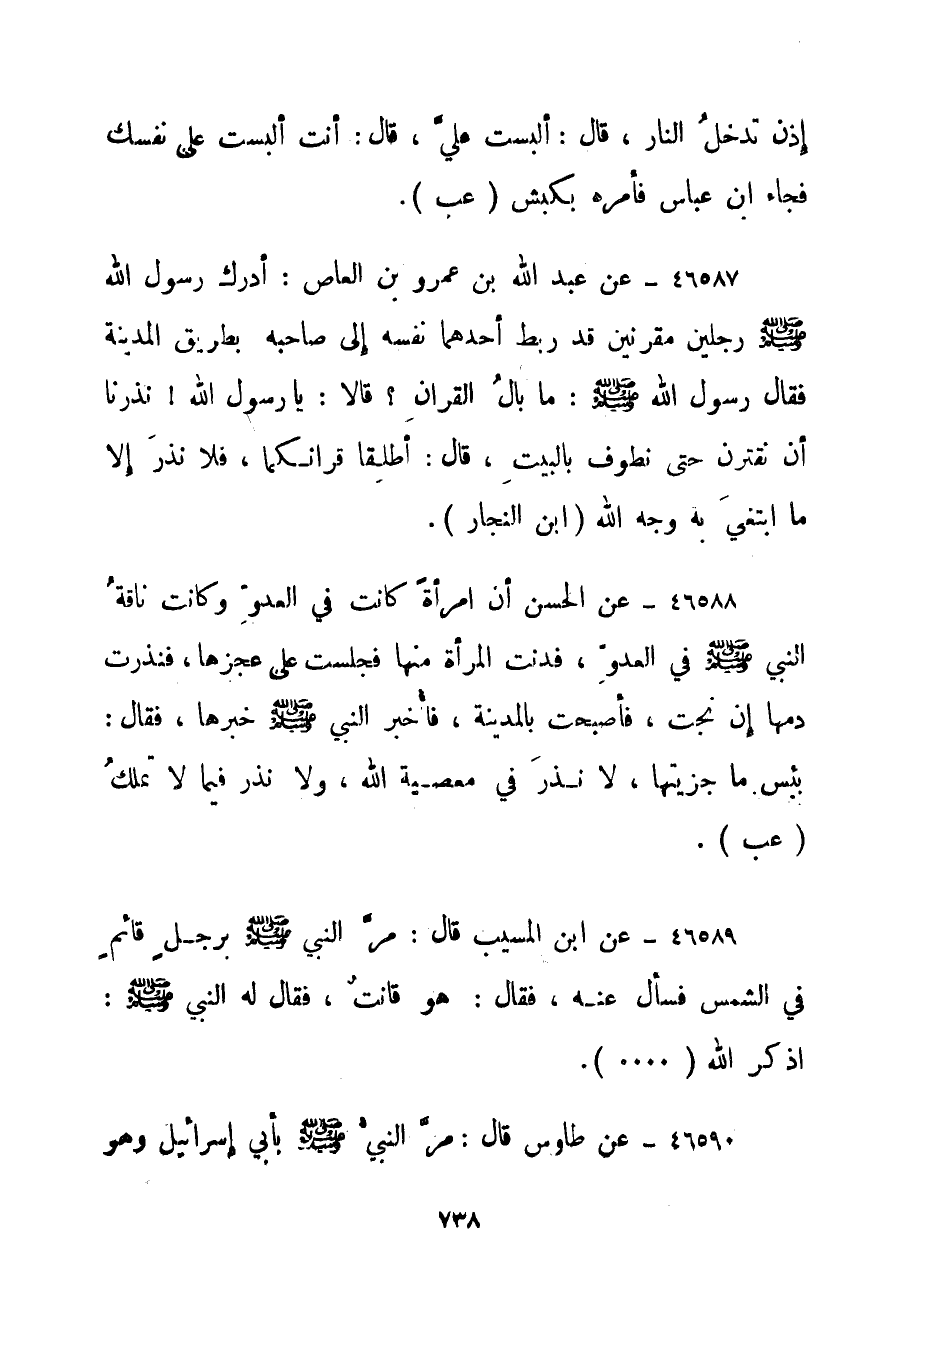 إذن تدخلُ النار ، قال : ألبست عليَّ ، قال : أنت ألبست على نفسك
فجاء ابن عباس فأمره بكبش ( عب ) .
٤٦٥٨٧ ـ عن عبد الله بن عمرو بن العاص : أدرك رسول الله
ﷺ رجلين مقرنين قد ربط أحدهما نفسه إلى صاحبه بطريق المدينة
فقال رسول الله ﷺ : ما بالُ القرانِ ؟ قالا : يا رسول الله ! نذرنا
أن نقترن حتى نطوف بالبيتِ ، قال : أطلِقا قرانـكما ، فلا نذرَ إلا
ما ابتغيَ به وجه الله ( ابن النجار ) .
٤٦٥٨٨ ـ عن الحسن أن امرأةً كانت في العدوِّ وكانت ناقةُ
النبي ﷺ في العدوِّ ، فدنت المرأة منها فجلست على عجزها ، فنذرت
دمها إن نجت ، فأصبحت بالمدينة ، فأُخبر النبي ﷺ خبرها ، فقال :
بئس ما جزيتِها ، لا نـذرَ في معصـية الله ، ولا نذر فيما لا تملكُ
( عب ) .
٤٦٥٨٩ ـ عن ابن المسيب قال : مرَّ النبي ﷺ برجـلٍ قائمٍ
في الشمس فسأل عنـه ، فقال : هو قانتٌ ، فقال له النبي ﷺ :
اذكر الله ( ٠٠٠٠ ) .
٤٦٥٩٠ ـ عن طاوس قال : مرَّ النبيُّ ﷺ بأبي إسرائيل وهو
٧٣٨